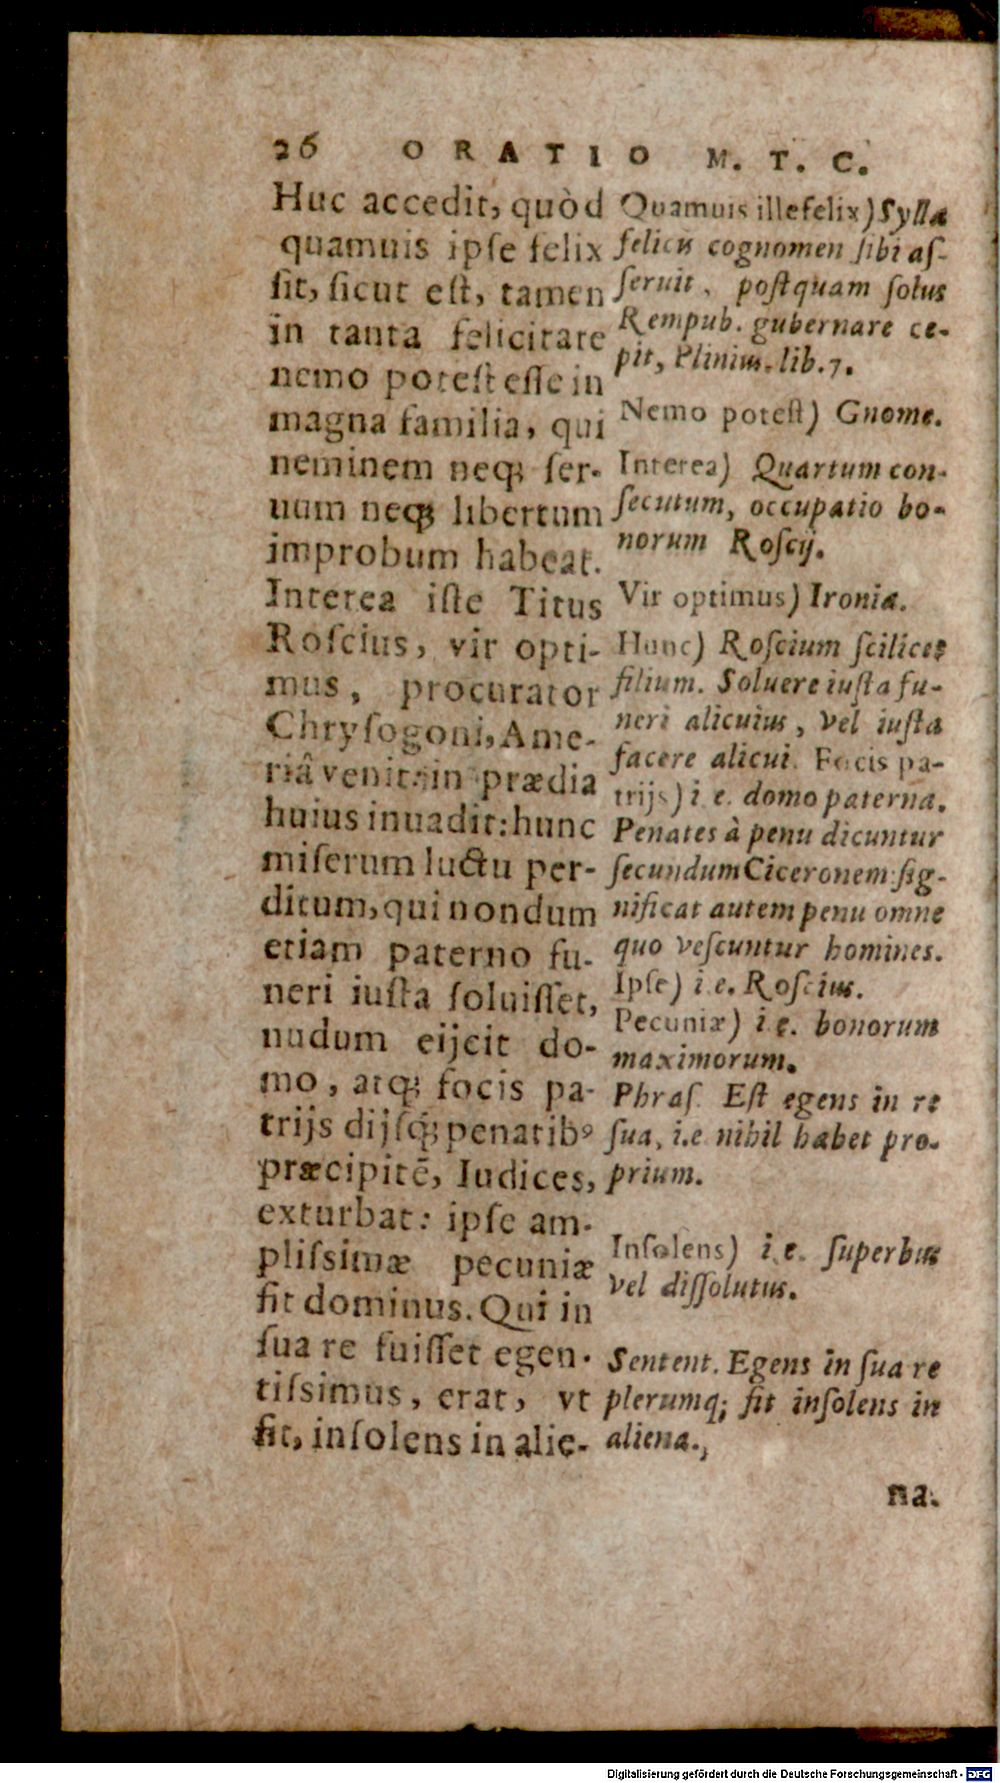 26 ORATIO M. T. C.
Huc accedit, quòd
quamuis ipſe felix
ſit, ſicut eſt, tamen
in tanta felicitate
nemo poteſt eſſe in
magna familia, qui
neminem neq; ſer-
uum neq; libertum
improbum habeat.
Interea iſte Titus
Roſcius, vir opti-
mus, procurator
Chryſogoni, Ame-
riâ venit: in prædia
huius inuadit: hunc
miſerum luctu per-
ditum, qui nondum
etiam paterno fu-
neri iuſta ſoluiſſet,
nudum eijcit do-
mo, atq; focis pa-
trijs dijſq́; penatibꝰ
præcipitē, Iudices,
exturbat: ipſe am-
pliſsimæ pecuniæ
fit dominus. Qui in
ſua re fuiſſet egen-
tiſsimus, erat, vt
fit, inſolens in alie-
Quamuis ille felix) Sylla
felicis cognomen ſibi aſ-
ſeruit, poſtquam ſolus
Rempub. gubernare ce-
pit, Plinius. lib. 7.
Nemo poteſt) Gnome.
Interea) Quartum con-
ſecutum, occupatio bo-
norum Roſcij.
Vir optimus) Ironia.
Hunc) Roſcium ſcilicet
filium. Soluere iuſta fu-
neri alicuius, vel iuſta
facere alicui. Focis pa-
trijs) i. e. domo paterna.
Penates à penu dicuntur
ſecundum Ciceronem: ſig-
nificat autem penu omne
quo veſcuntur homines.
Ipſe) i. e. Roſcius.
Pecuniæ) i. e. bonorum
maximorum.
Phraſ. Eſt egens in re
ſua, i.e nihil habet pro-
prium.
Inſolens) i. e. ſuperbus
vel diſſolutus.
Sentent. Egens in ſua re
plerumq; fit inſolens in
aliena.
na.
Digitalisierung gefördert durch die Deutsche Forschungsgemeinschaft - DFG